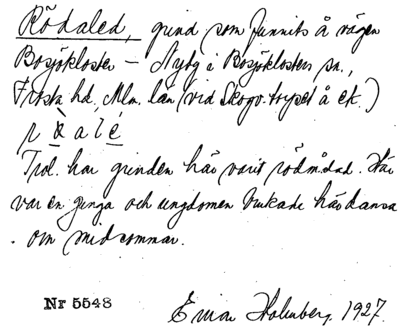 Rödaled, grind som funnits å vägen
Bosjökloster – Nyby i Bosjöklosters sn.,
Frosta hd, Mlm. län (vid Skogv.torpet å ek.)
Trol. har grinden här varit rödmålad. Här
var en gunga och ungdomen brukade här dansa
om midsommar.
Nr 5548
Holmberg, 1927.